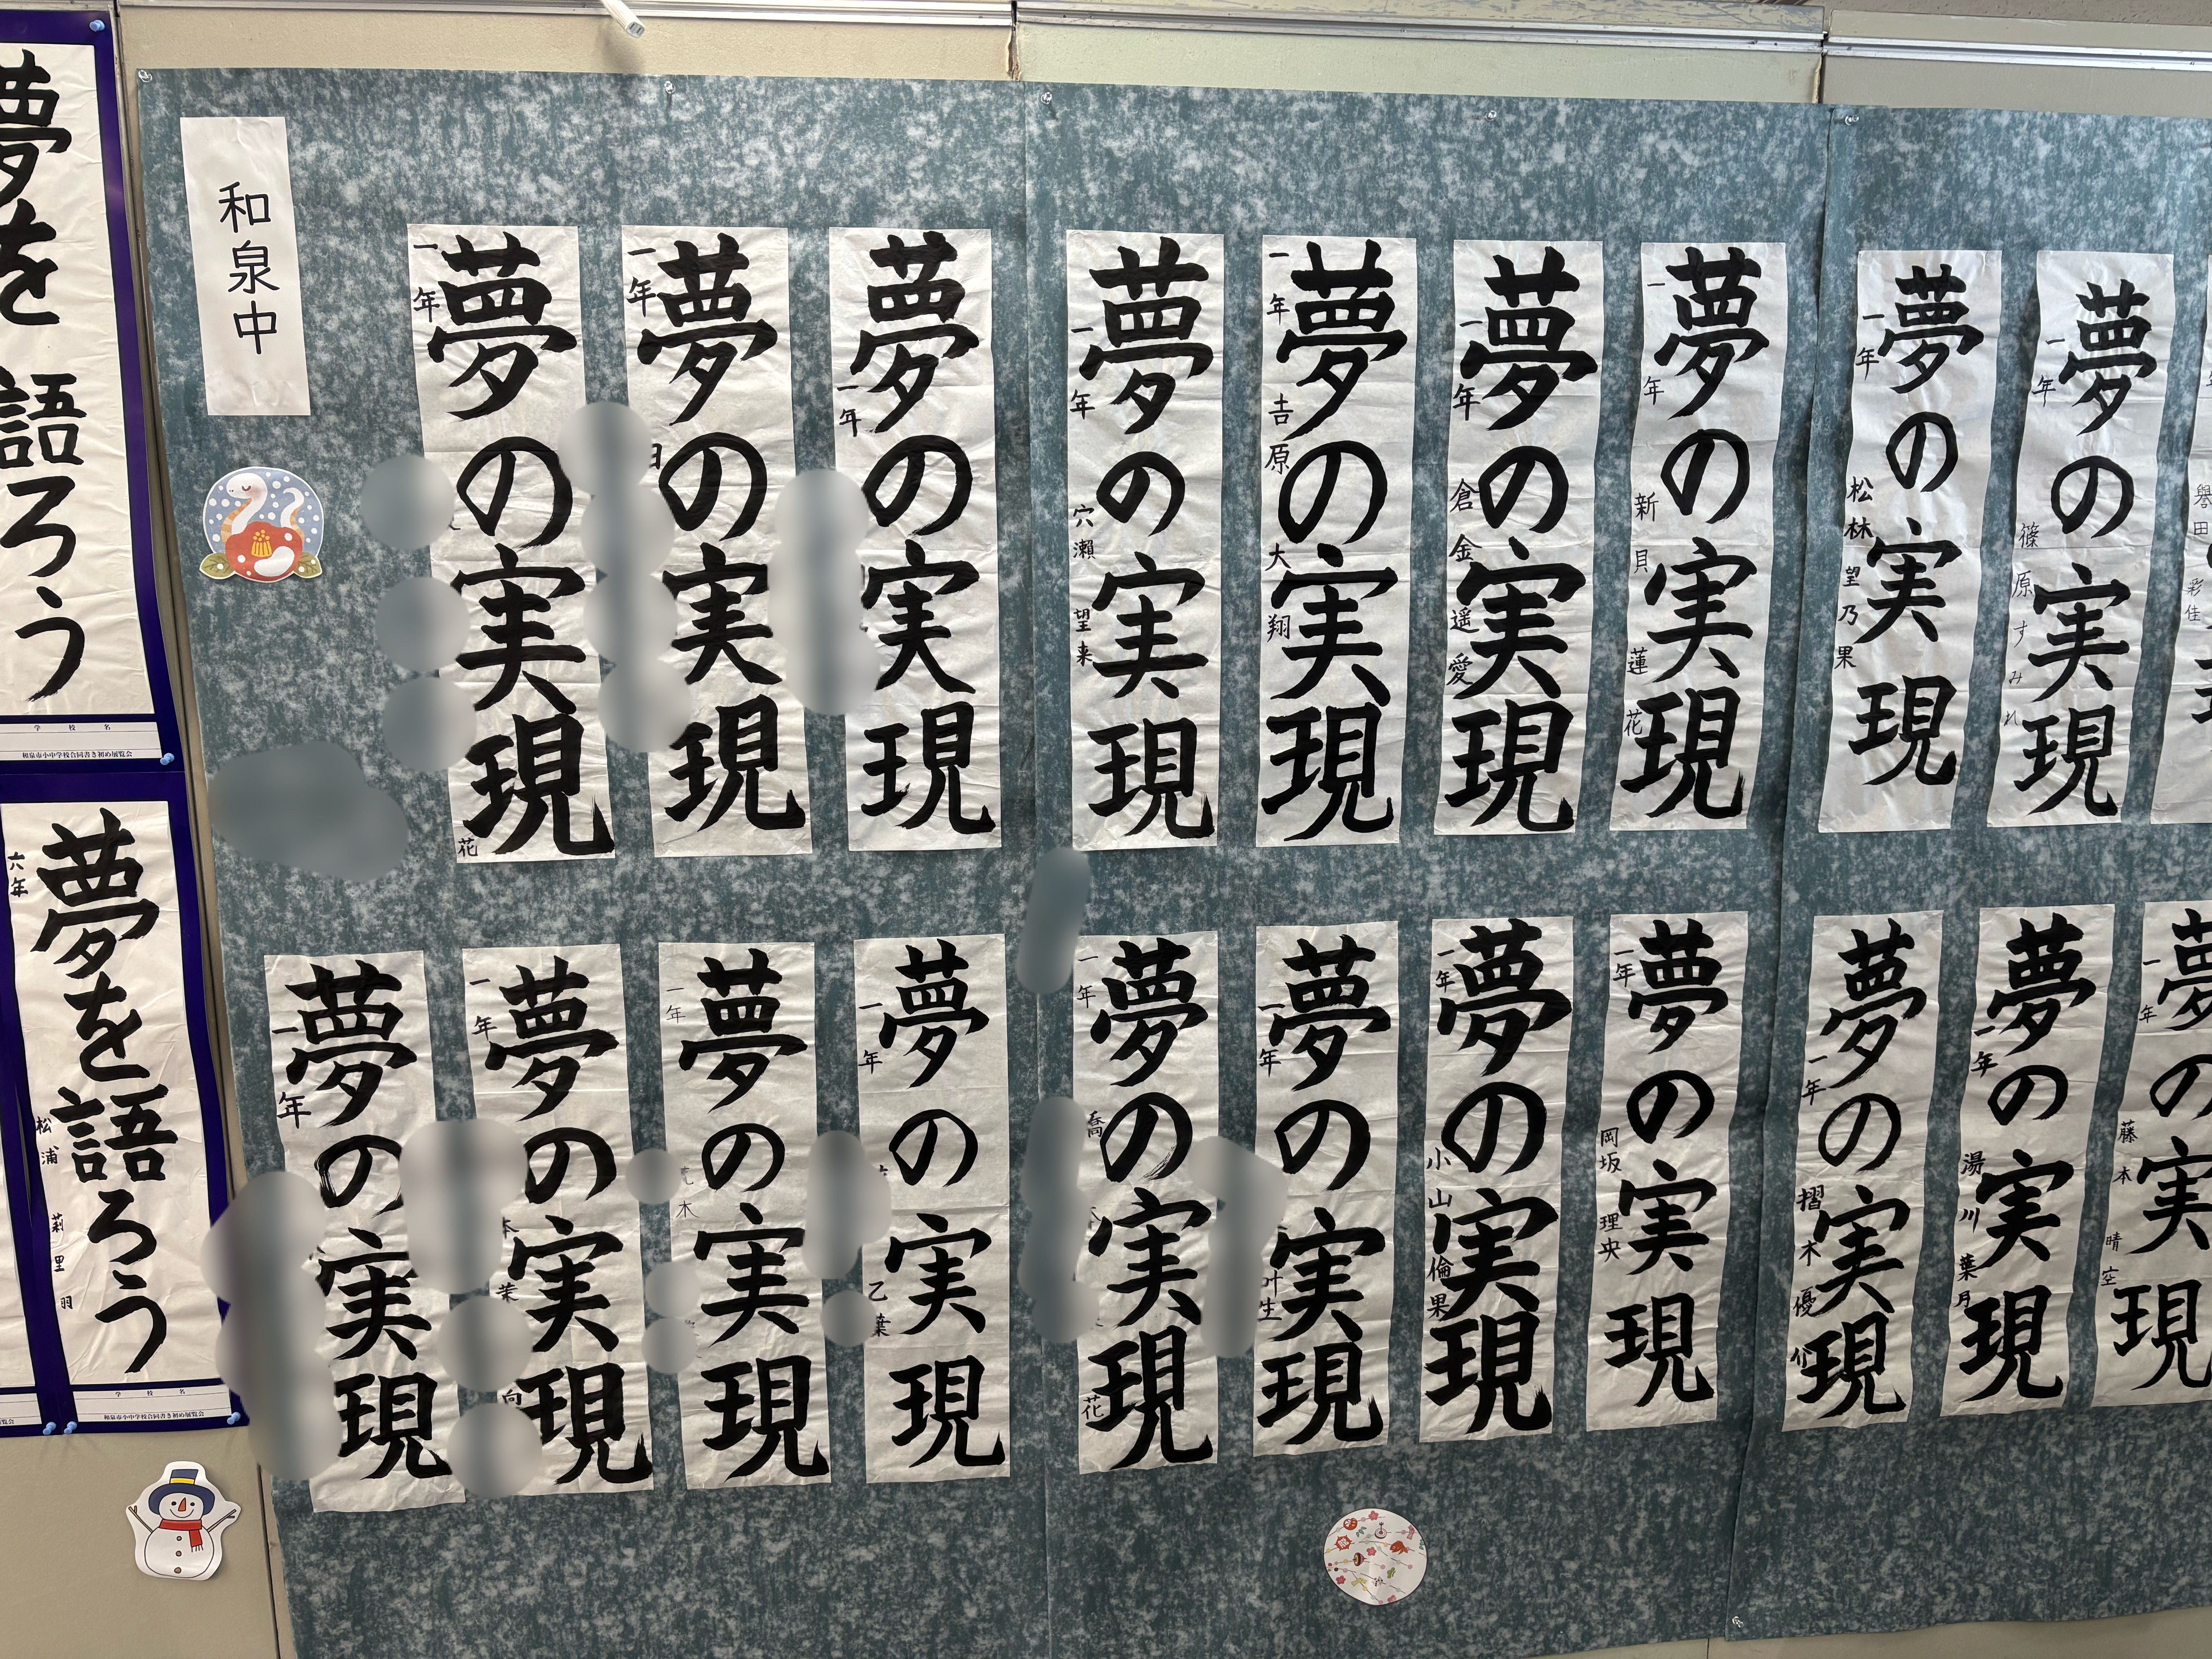 夢を語ろう
学校名
和泉市小中学校合同書き初め展覧会
夢を語ろう
六年 松浦 莉里羽
学校名
和泉市小中学校合同書き初め展覧会
和泉中
夢の実現
一年
花
夢の実現
一年
夢の実現
一年
夢の実現
一年 穴瀬 望来
夢の実現
一年 吉原 大翔
夢の実現
一年 倉金 遥愛
夢の実現
一年 新貝 蓮花
夢の実現
一年 松林 望乃果
夢の実現
一年 篠原 すみれ
彩佳
夢の実現
一年
夢の実現
一年
夢の実現
一年
木
夢の実現
一年
乙葉
夢の実現
一年
花
夢の実現
一年
叶生
夢の実現
一年 小山 倫果
夢の実現
一年 岡坂 理央
夢の実現
一年 摺木 優
夢の実現
一年 湯川 葉月
夢の実現
一年 藤本 晴空